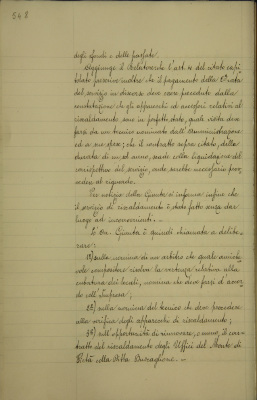 548
degli sfondi e delle facciate.
Aggiunge il Relatore che l'art. 4 del citato capi-
tolato prescrive inoltre che il pagamento della 2ª rata
del servizio in discorso deve essere preceduto dalla
constatazione che gli apparecchi ed accessori relativi al
riscaldamento sono in perfetto stato, quale visita deve
farsi da un tecnico nominato dall'Amministrazione
ed a sue spese; che il contratto sopra citato, della
durata di un ed anno, scade colla liquidazione del
corrispettivo del servizio, onde sarebbe necessario prov-
vedere al riguardo.
Per notizia della Giunta si informa infine che
il servizio di riscaldamento è stato fatto senza dar
luogo ad inconvenienti. -
La On. Giunta è quindi chiamata a delibe-
rare:
1º) sulla nomina di un arbitro che quale amiche-
vole compositore risolva la vertenza relativa alla
cubatura dei locali, nomina che deve farsi d'accor-
do coll'Impresa;
2º) sulla nomina del tecnico che deve procedere
alla verifica degli apparecchi di riscaldamento;
3º) sull'opportunità di rinnovare, o meno, il con-
tratto del riscaldamento degli Uffici del Monte di
Pietà alla Ditta